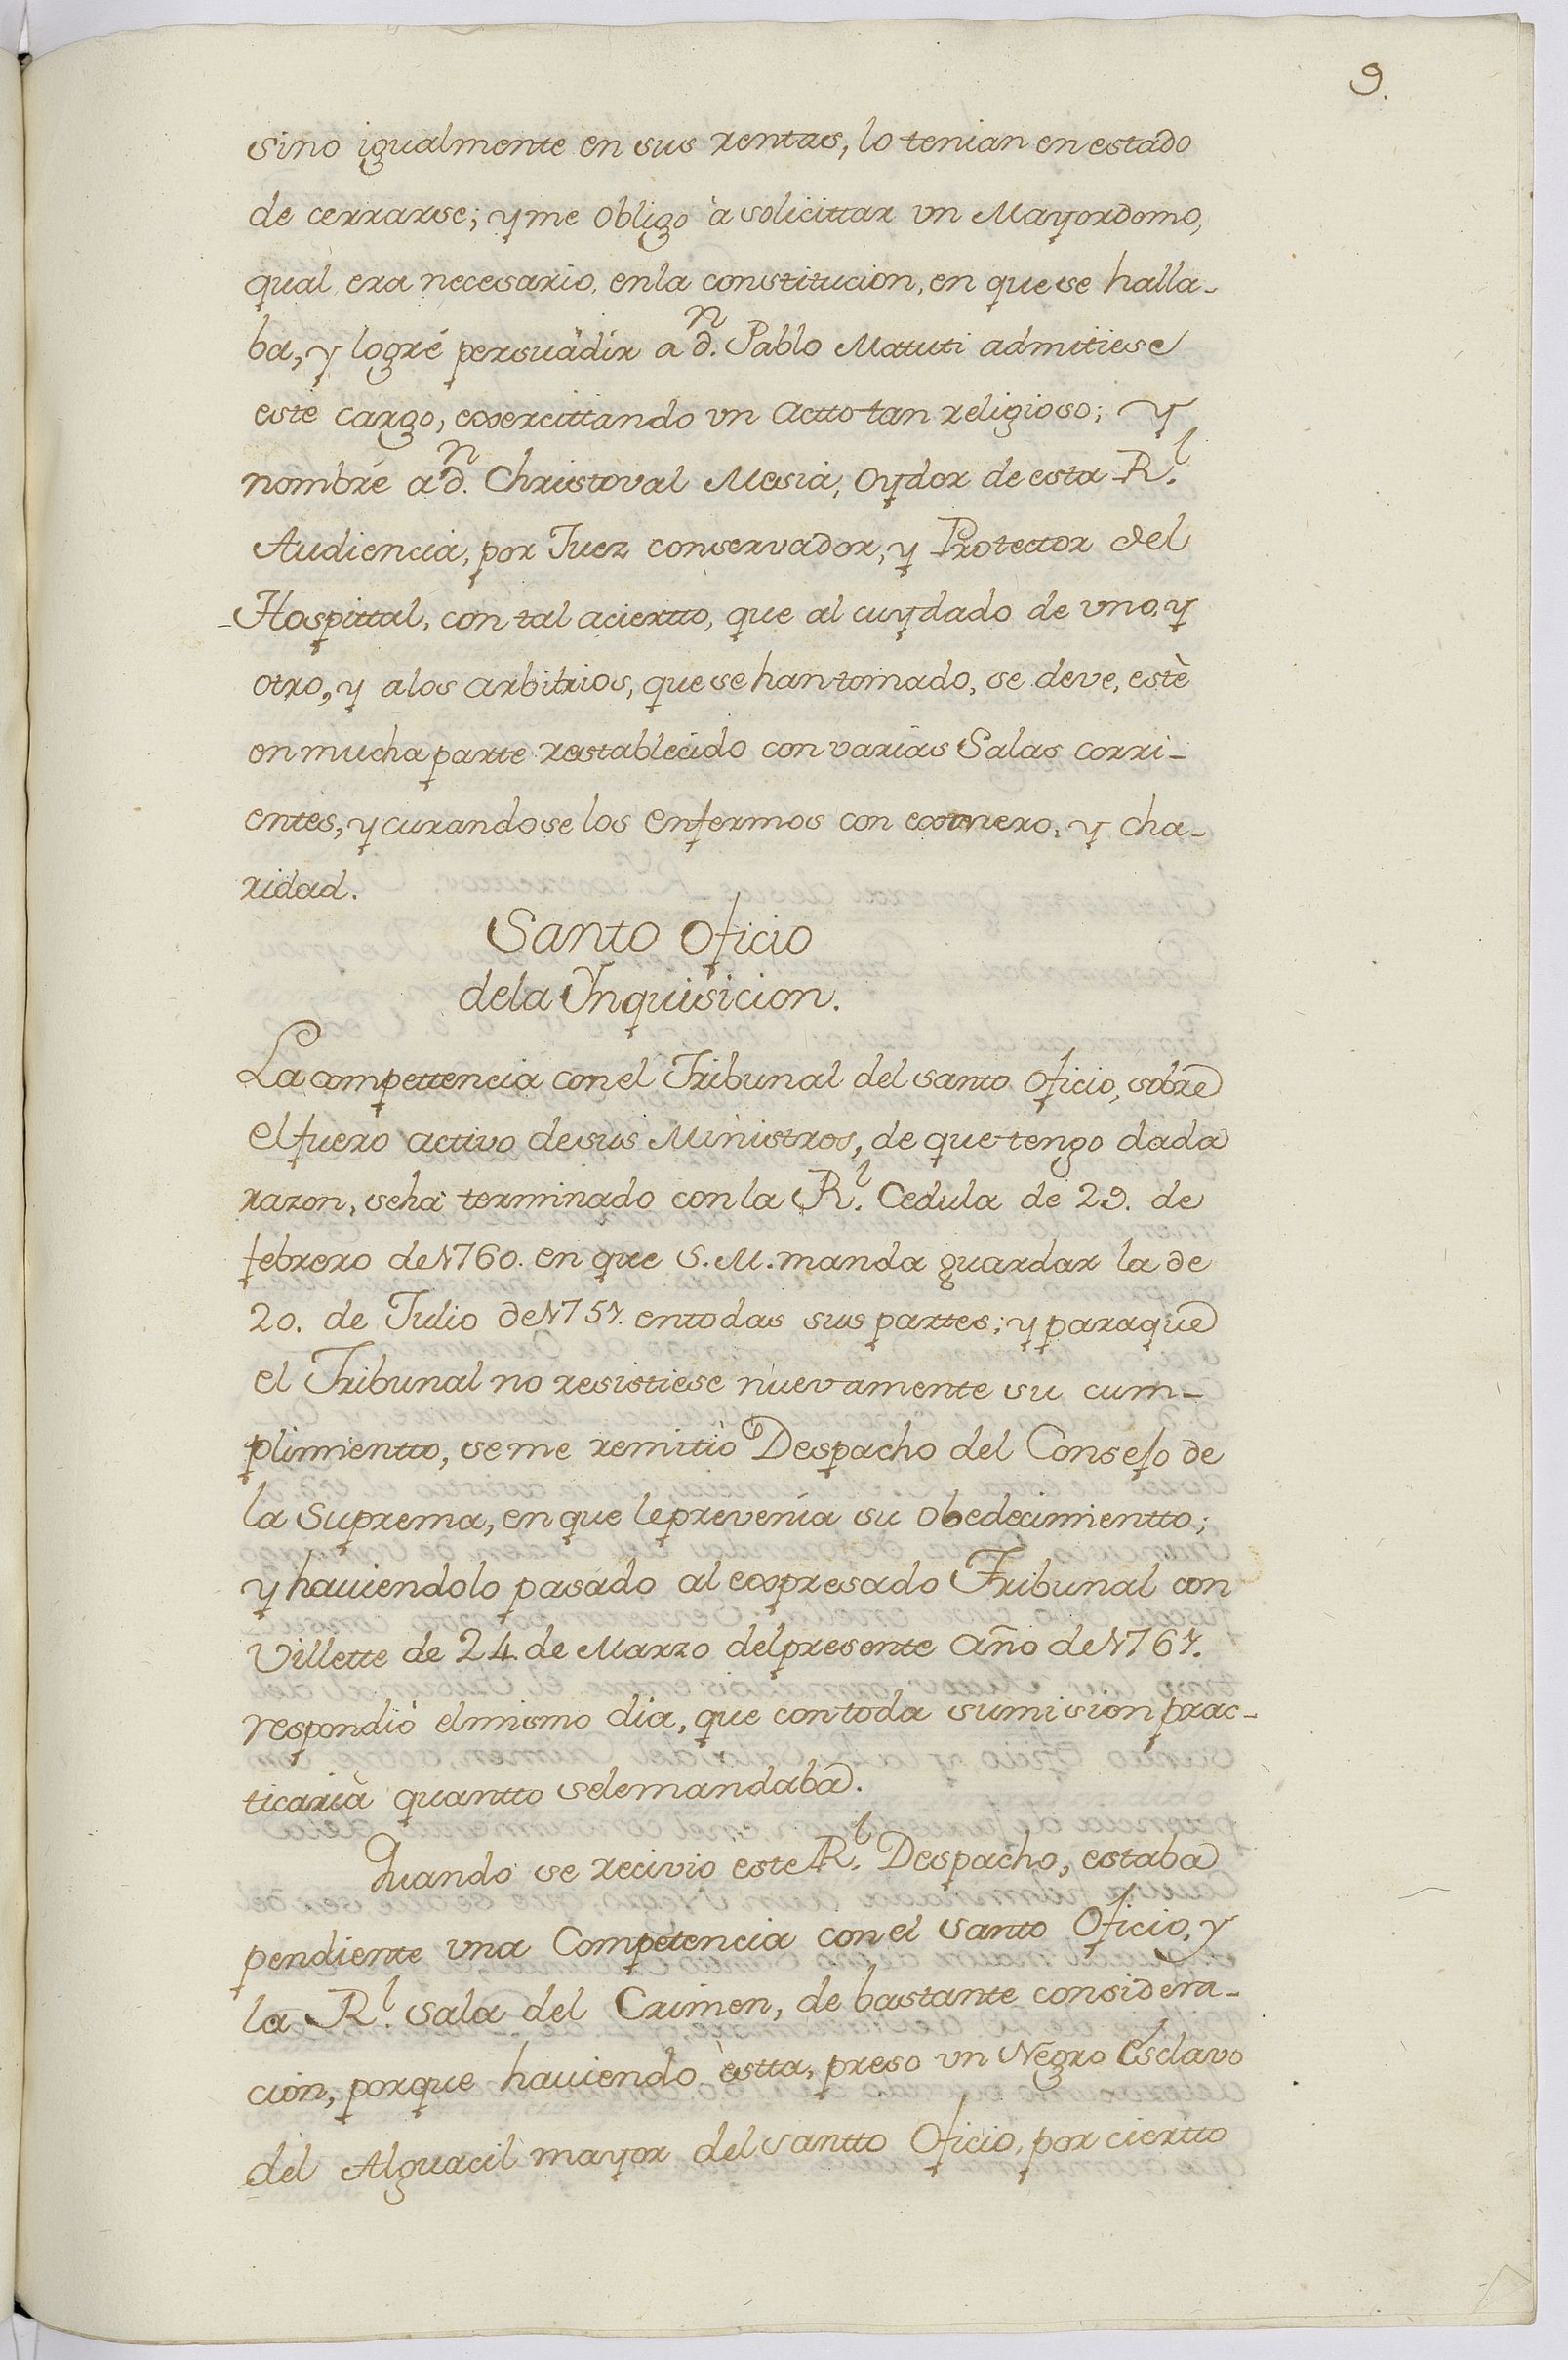 9.
sino igualmente en sus rentas, lo tenian en estado
de cerrarse; y me obligo à solicittar vn Mayordomo,
qual era necesario, enla constitucion, en que se halla-
ba, y logré persuadir a dn. Pablo Matuti admitiese
este cargo, exercittando vn actto tan religioso; y
nombré a dn. Christoval Mesia, Oydor de esta Rl.
Audiencia, por Juez conservador, y Protector del
Hospittal, con tal aciertto, que al cuydado de vno, y
otro, y alos arbitrios, que se han tomado, se deve, estè
en mucha parte restablecido con varias Salas corri-
entes, y curandose los enfermos con exmero, y cha-
ridad.
Santo Oficio
dela Ynquisicion.
La compettencia con el Tribunal del santo Oficio, sobre
el fuero activo de sus Ministros, de que tengo dada
razon, seha terminado con la Rl. Cedula de 29. de
febrero de 1760. en que S. M. manda guardar la de
20. de Julio de 1757. entodas sus partes; y paraque
el Tribunal no resistiese nuevamente su cum-
plimientto, seme remitiò Despacho del Consejo de
la Suprema, en que leprevenia su obedecimientto;
y haviendolo pasado al expresado Tribunal con
Villette de 24. de Marzo delpresente año de 1767.
respondiò elmismo dia, que con toda sumision prac-
ticaria quantto selemandaba.
Quando se recivio este Rl. Despacho, estaba
pendiente vna Competencia con el santo Oficio, y
la Rl. sala del Crimen, de bastante considera-
cion, porque haviendo èstta, preso vn Negro esclavo
del Alguacil mayor del santto Oficio, por ciertto